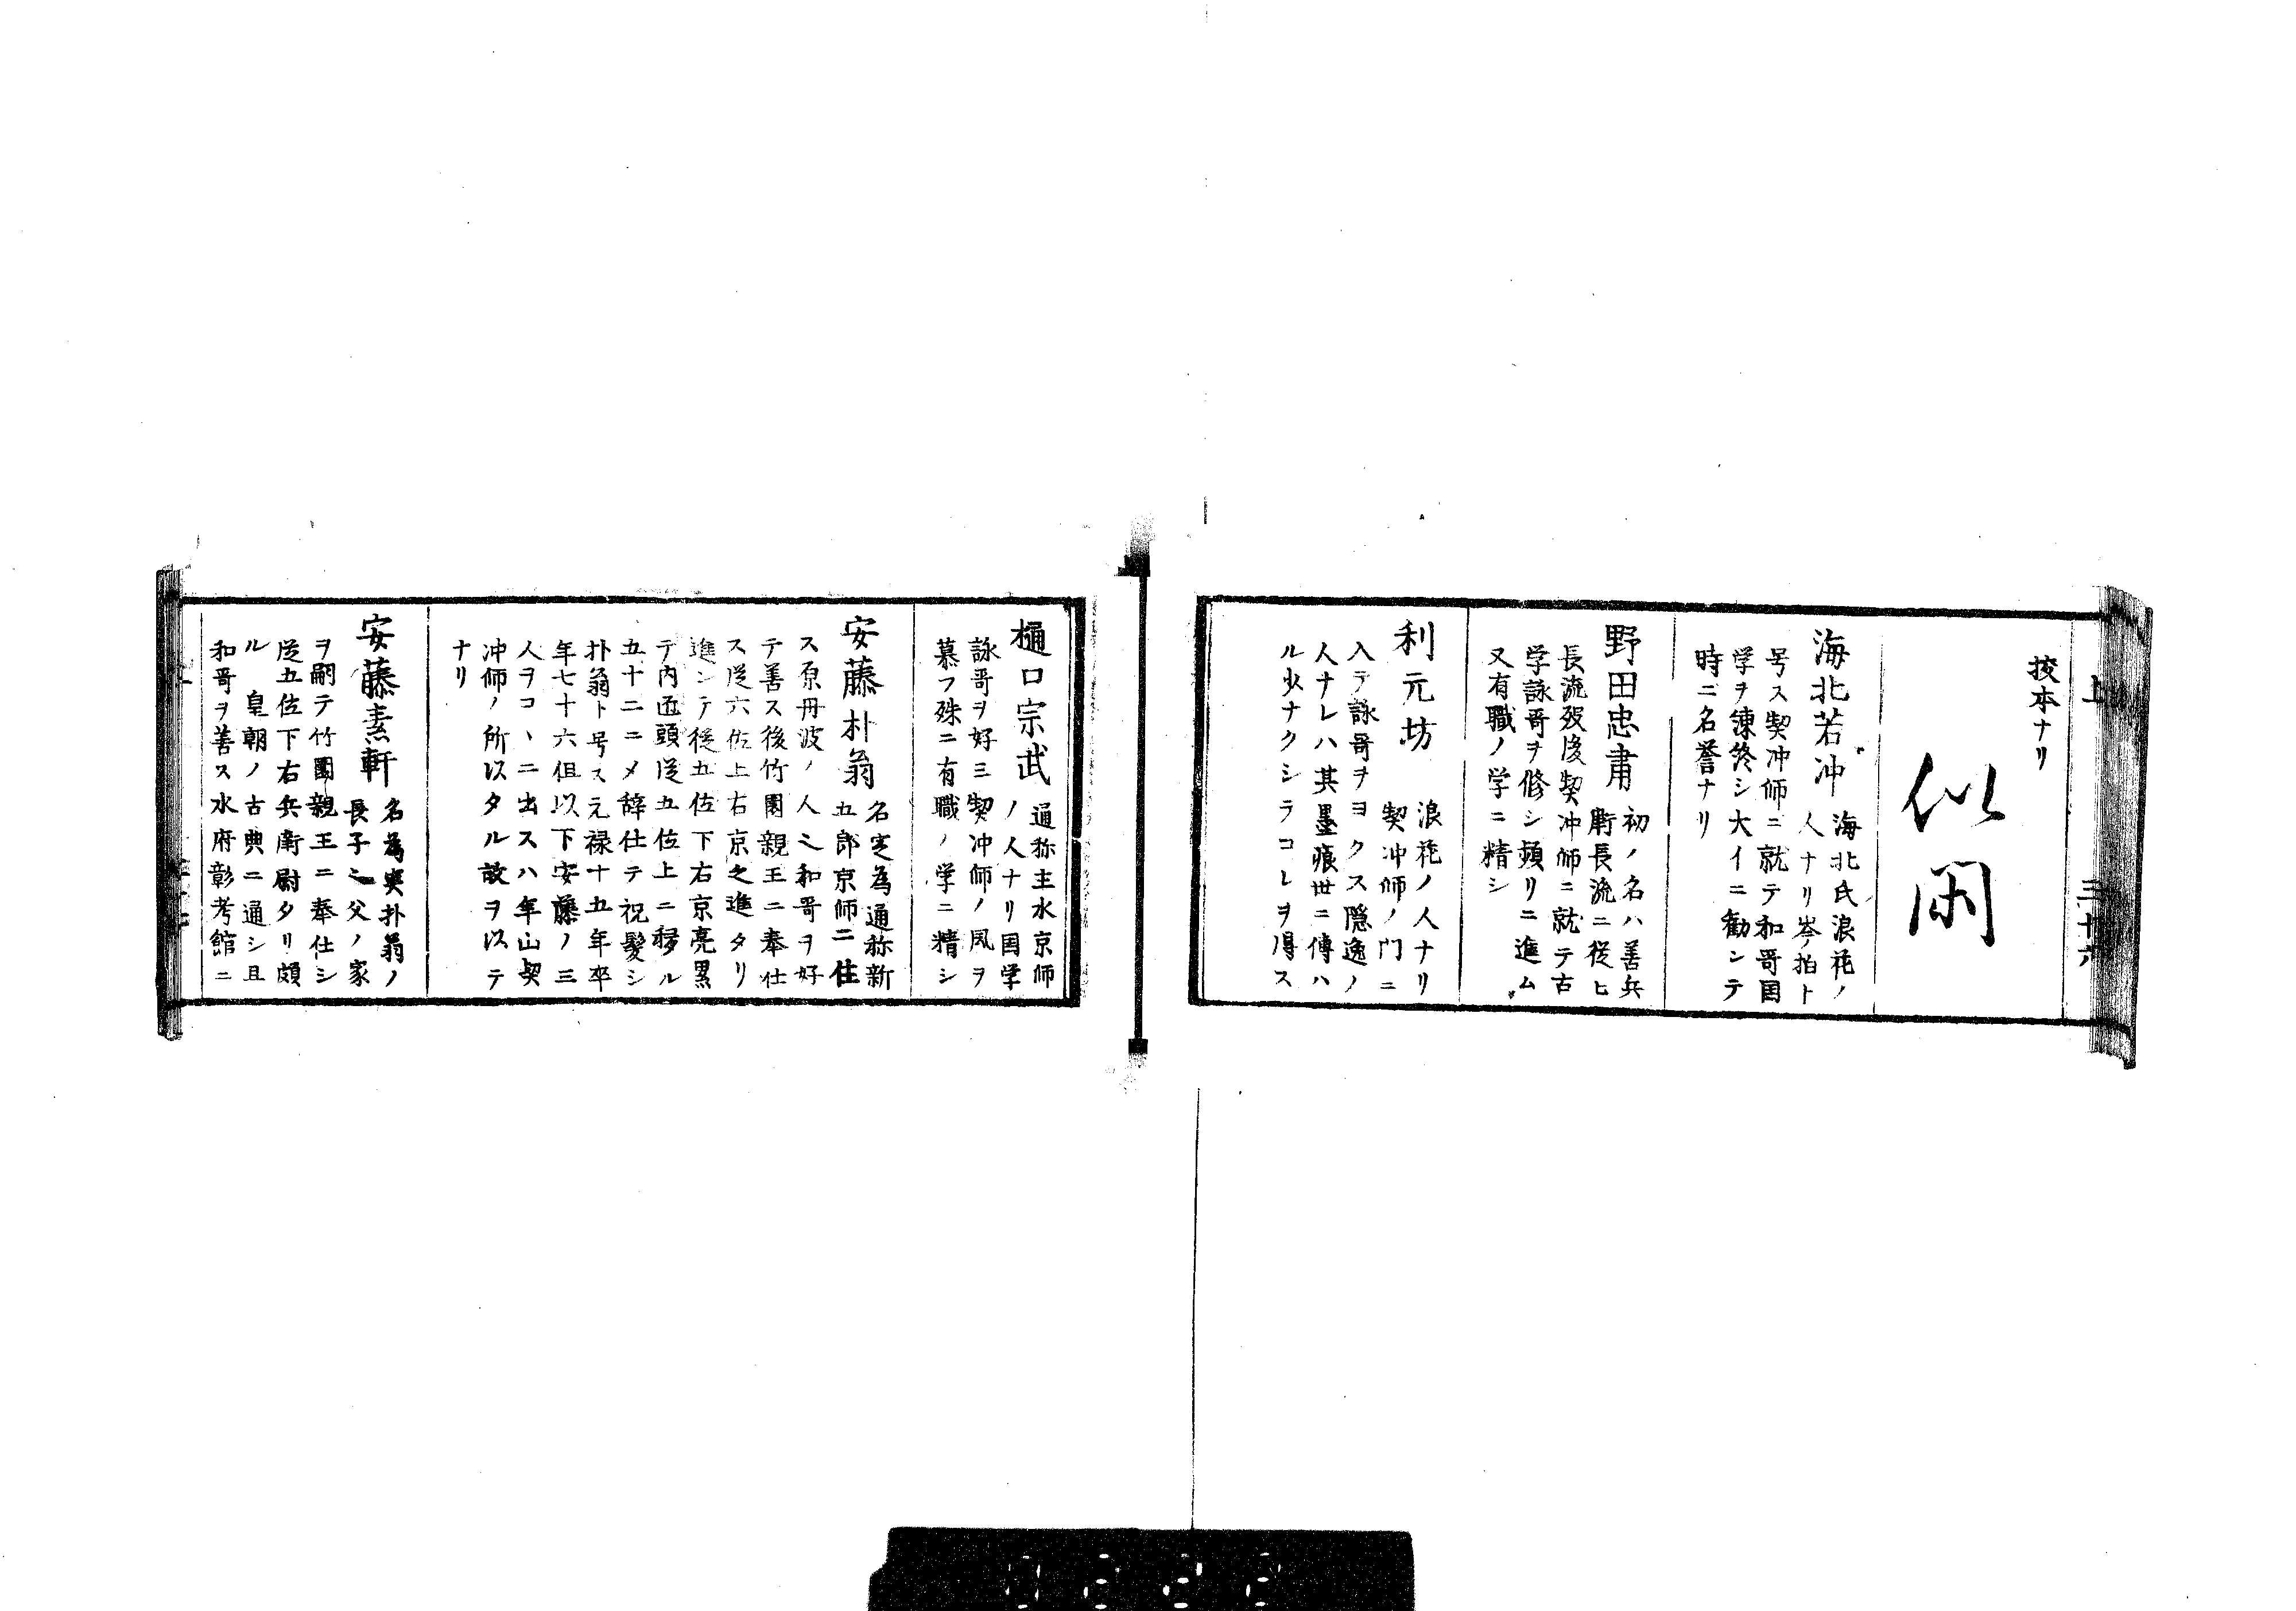 上 三十六
挍本ナリ
似閑
海北若冲
海北氏浪花ノ
人ナリ岑ノ拍ト
号ス契冲師ニ就テ和哥国
学ヲ錬終シ大イニ勧ンテ
時ニ名誉ナリ
野田忠肅
初ノ名ハ善兵
衛長流ニ従ヒ
長流歿後契冲師ニ就テ古
学詠哥ヲ修シ頻リニ進ム
又有職ノ学ニ精シ
利元坊
浪花ノ人ナリ
契冲師ノ門ニ
入テ詠哥ヲヨクス隠逸ノ
人ナレハ其墨痕世ニ傳ハ
ル少ナクシテコレヲ得ス
樋口宗武
通称主水京師
ノ人ナリ国学
詠哥ヲ好ミ契冲師ノ風ヲ
慕フ殊ニ有職ノ学ニ精シ
安藤朴翁
名定為通称新
五郎京師ニ住
ス原丹波ノ人也和哥ヲ好
テ善ス後竹園親王ニ奉仕
ス従六位上右京之進タリ
進ンテ従五位下右京亮累
テ内匠頭従五位上ニ移ル
五十二ニメ辞仕テ祝髪シ
朴翁ト号ス元禄十五年卒
年七十六但以下安藤ノ三
人ヲコヽニ出スハ年山契
冲師ノ所以タル故ヲ以テ
ナリ
安藤素軒
名為実朴翁ノ
長子也父ノ家
ヲ嗣テ竹園親王ニ奉仕シ
従五位下右兵衛尉タリ頗
ル 皇朝ノ古典ニ通シ且
和哥ヲ善ス水府彰考館ニ